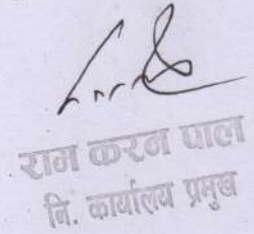 राम करन पाल
नि. कार्यालय प्रमुख